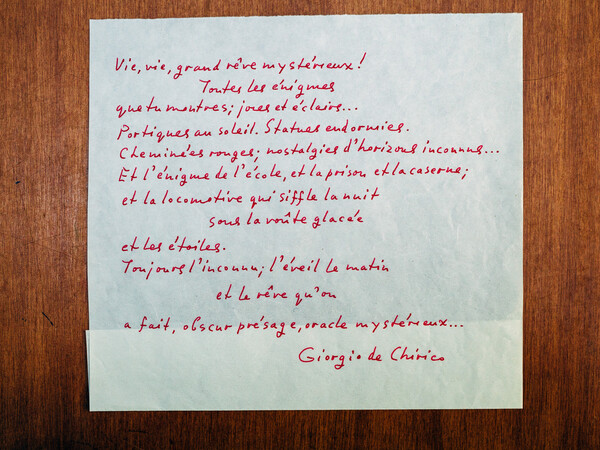 Vie, vie, grand rêve mystérieux!
Toutes les énigmes
que tu montres; joies et éclairs...
Portiques au soleil. Statues endormies.
Cheminées rouges; nostalgies d'horizons inconnus...
Et l'énigme de l'école, et la prison et la caserne;
et la locomotive qui siffle la nuit
sous la voûte glacée
et les étoiles.
Toujours l'inconnu; l'éveil le matin
et le rêve qu'on
a fait, obscur présage, oracle mystérieux...
Giorgio de Chirico